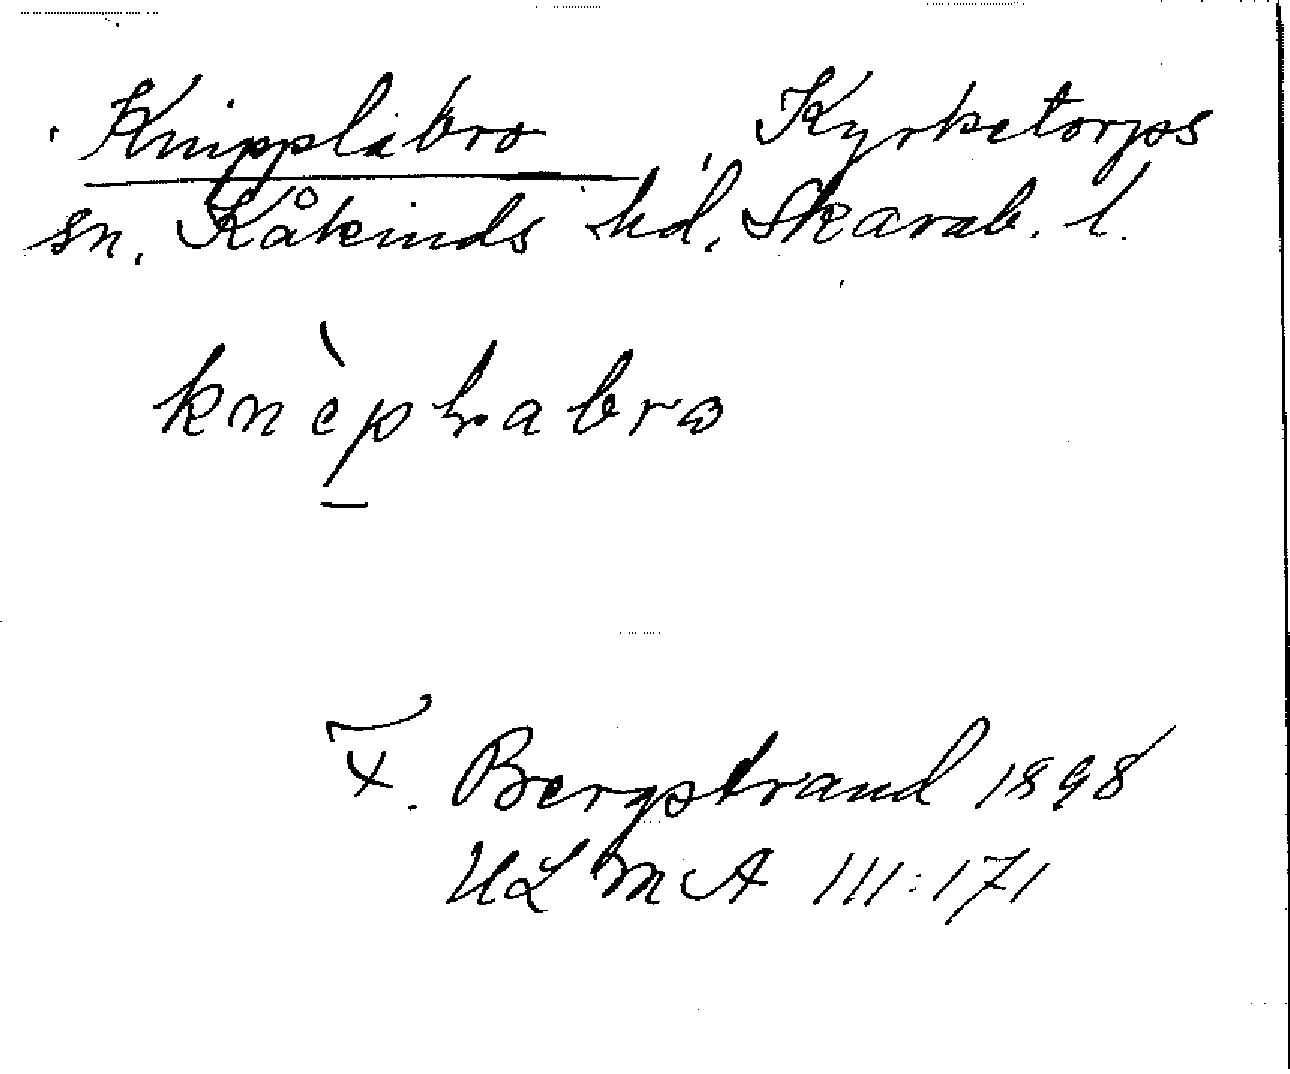 Knipplabro, Kyrketorps
sn. Kåkinds hd. Skarab. l.
knèplabro
F. Bergstrand 1898
ULMA 111:171